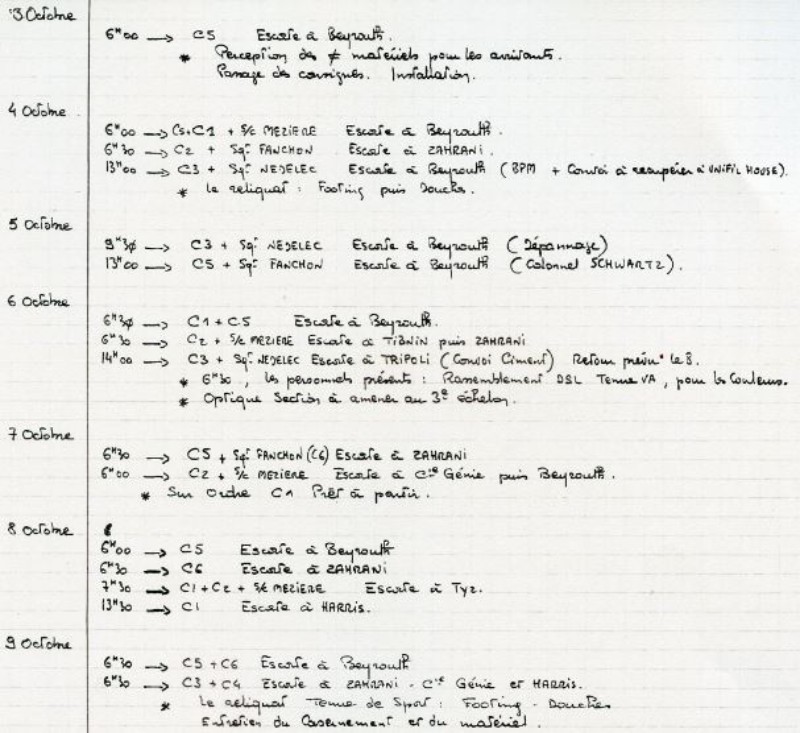 3 Octobre
6H00 → C5 Escorte à Beyrouth.
* Perception des ≠ matériels pour les arrivants.
Passage des consignes. Installation.
4 Octobre
6H00 → C5+C1 + S/c MEZIERE Escorte à Beyrouth.
6H30 → C2 + Sgt FANCHON Escorte à ZAHRANI.
13H00 → C3 + Sgt NEDELEC Escorte à Beyrouth (BPM + Convoi à récupérer à UNIFIL HOUSE).
* Le reliquat : Footing puis Douches.
5 Octobre
9H30 → C3 + Sgt NEDELEC Escorte à Beyrouth (Dépannage)
13H00 → C5 + Sgt FANCHON Escorte à Beyrouth (Colonnel SCHWARTZ).
6 Octobre
6H30 → C1 + C5 Escorte à Beyrouth.
6H30 → C2 + S/c MEZIERE Escorte à TIBNIN puis ZAHRANI
14H00 → C3 + Sgt NEDELEC Escorte à TRIPOLI (Convoi Ciment) Retour prévu le 8.
* 6H30, les personnels présents : Rassemblement DSL Tenue VA, pour les Couleurs.
* Optique Section à amener au 3e échelon.
7 Octobre
6H30 → C5 + Sgt FANCHON (C6) Escorte à ZAHRANI
6H00 → C2 + S/c MEZIERE Escorte à Cie Génie puis Beyrouth.
* Sur Ordre C1 Prêt à partir.
8 Octobre
6H00 → C5 Escorte à Beyrouth
6H30 → C6 Escorte à ZAHRANI
7H30 → C1 + C2 + S/c MEZIERE Escorte à Tyr.
13H30 → C1 Escorte à HARRIS.
9 Octobre
6H30 → C5 + C6 Escorte à Beyrouth
6H30 → C3 + C4 Escorte à ZAHRANI - Cie Génie et HARRIS.
* Le reliquat Tenue de Sport : Footing - Douches
Entretien du Casernement et du matériel.